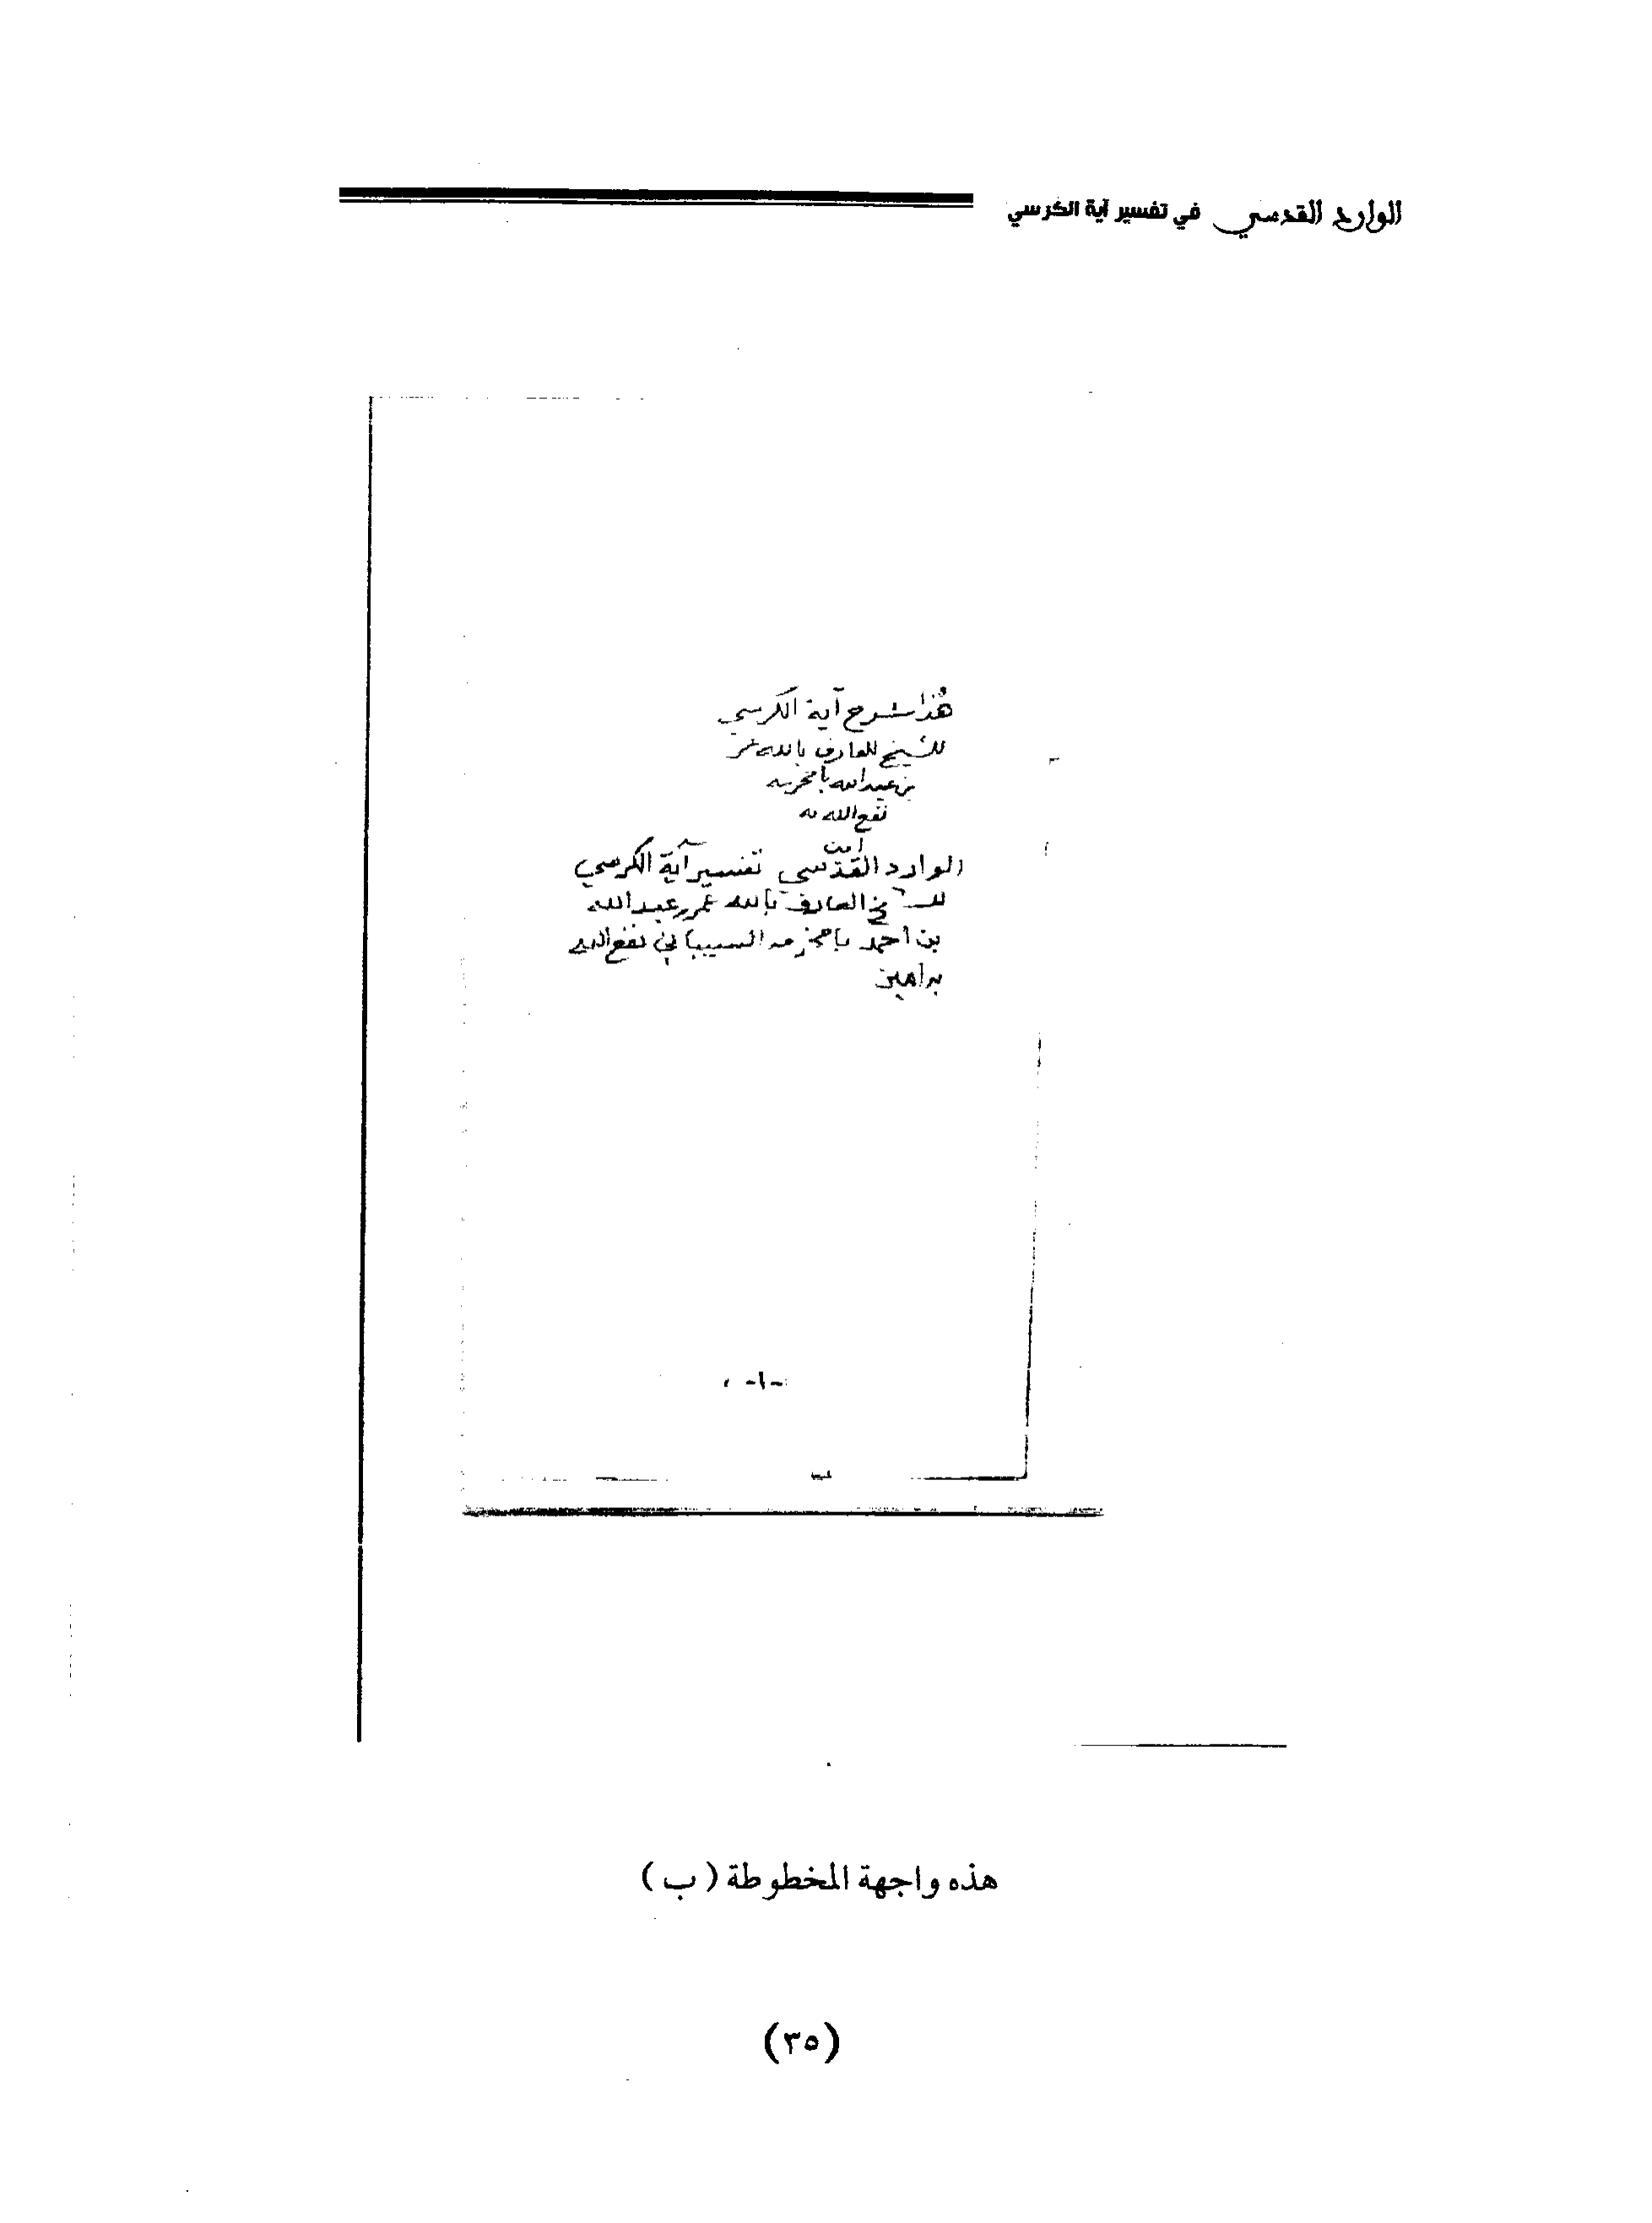 الوارد القدسي في تفسير آية الكرسي
هذا شرح آية الكرسي
للشيخ العارف بالله عمر
بن عبدالله بامخرمه
نفع الله به
آمين
الوارد القدسي تفسير آية الكرسي
للشيخ العارف بالله عمر بن عبدالله
بن أحمد بامخرمه السيباني نفع الله
به آمين
-١-
هذه واجهة المخطوطة (ب)
(٣٥)